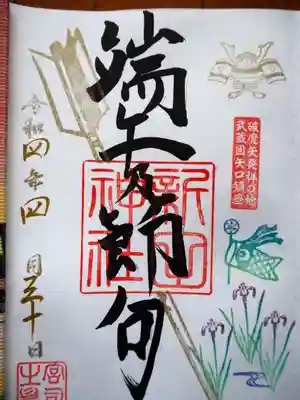 破魔矢発祥の地
武蔵国矢口鎮座
端午乃節句
新田
神社
令和四年四月三十日